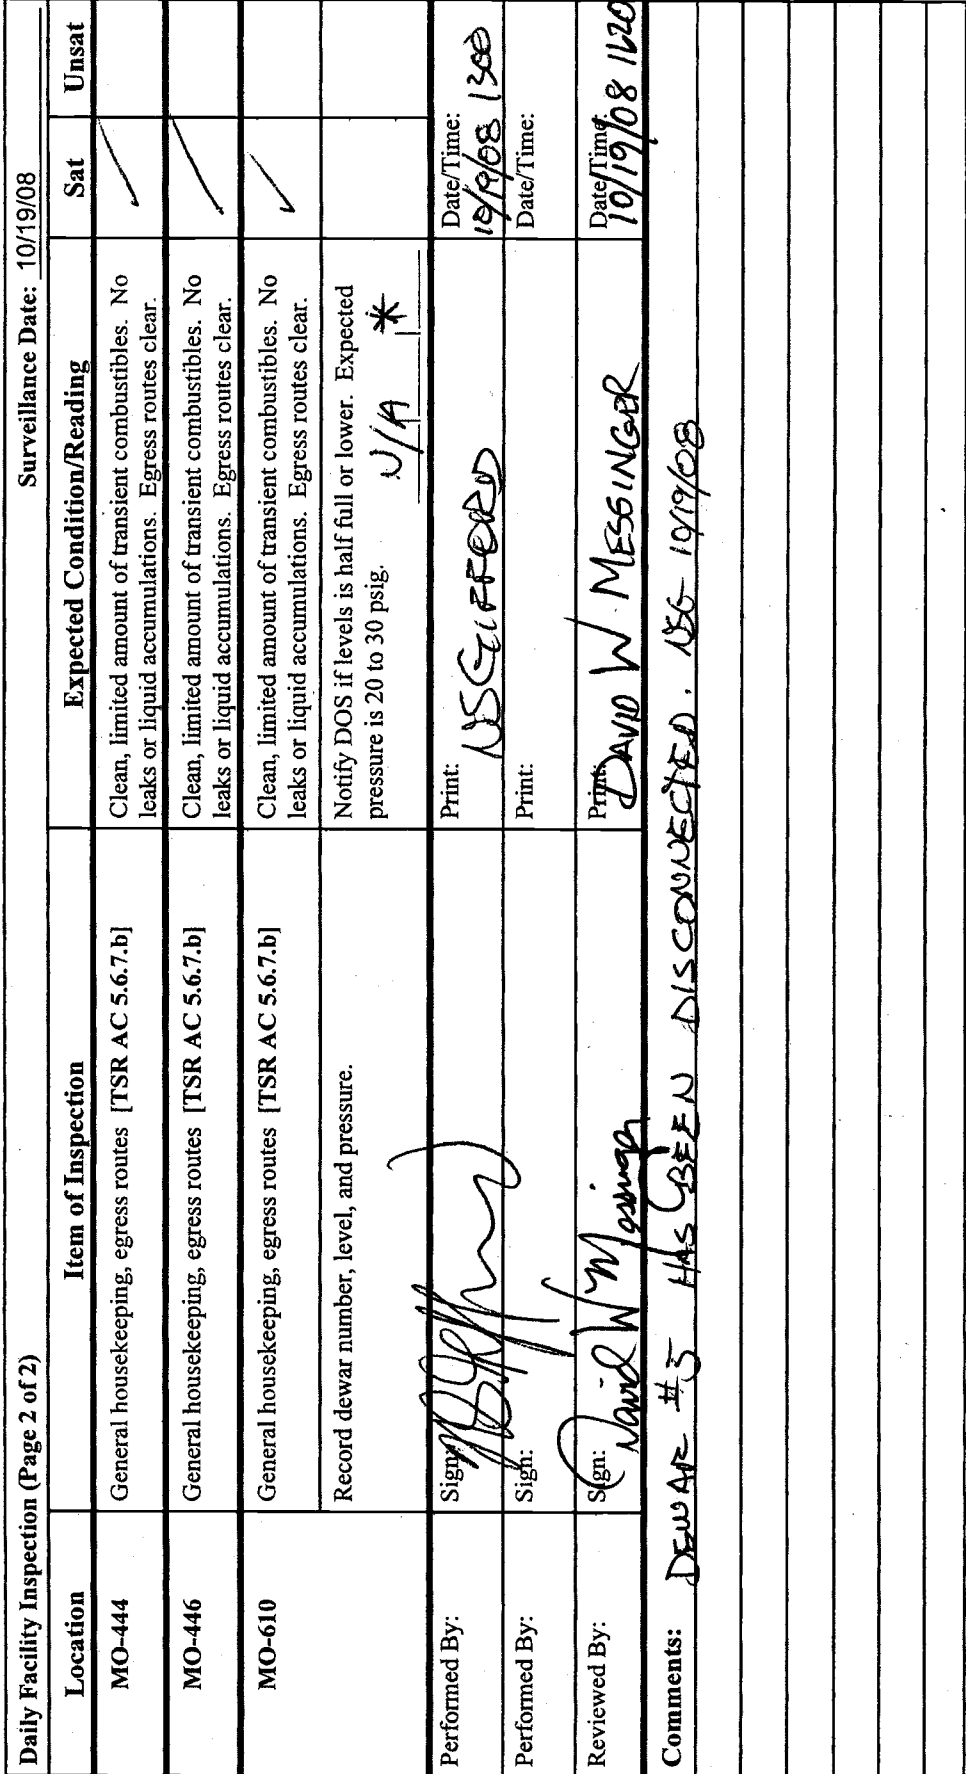 Daily Facility Inspection (Page 2 of 2) Surveillance Date: 10/19/08
Location Item of Inspection Expected Condition/Reading Sat Unsat
MO-444 General housekeeping, egress routes [TSR AC 5.6.7.b] Clean, limited amount of transient combustibles. No
leaks or liquid accumulations. Egress routes clear. ✓
MO-446 General housekeeping, egress routes [TSR AC 5.6.7.b] Clean, limited amount of transient combustibles. No
leaks or liquid accumulations. Egress routes clear. ✓
MO-610 General housekeeping, egress routes [TSR AC 5.6.7.b] Clean, limited amount of transient combustibles. No
leaks or liquid accumulations. Egress routes clear. ✓
Record dewar number, level, and pressure. Notify DOS if levels is half full or lower. Expected
pressure is 20 to 30 psig. N/A *
Performed By: Sign: Print: NS GIFFORD Date/Time: 10/19/08 1300
Performed By: Sign: Print: Date/Time:
Reviewed By: Sign: David W Messinger Print: DAVID W MESSINGER Date/Time: 10/19/08 1620
Comments: DEWAR #5 HAS BEEN DISCONNECTED. NSG 10/19/08